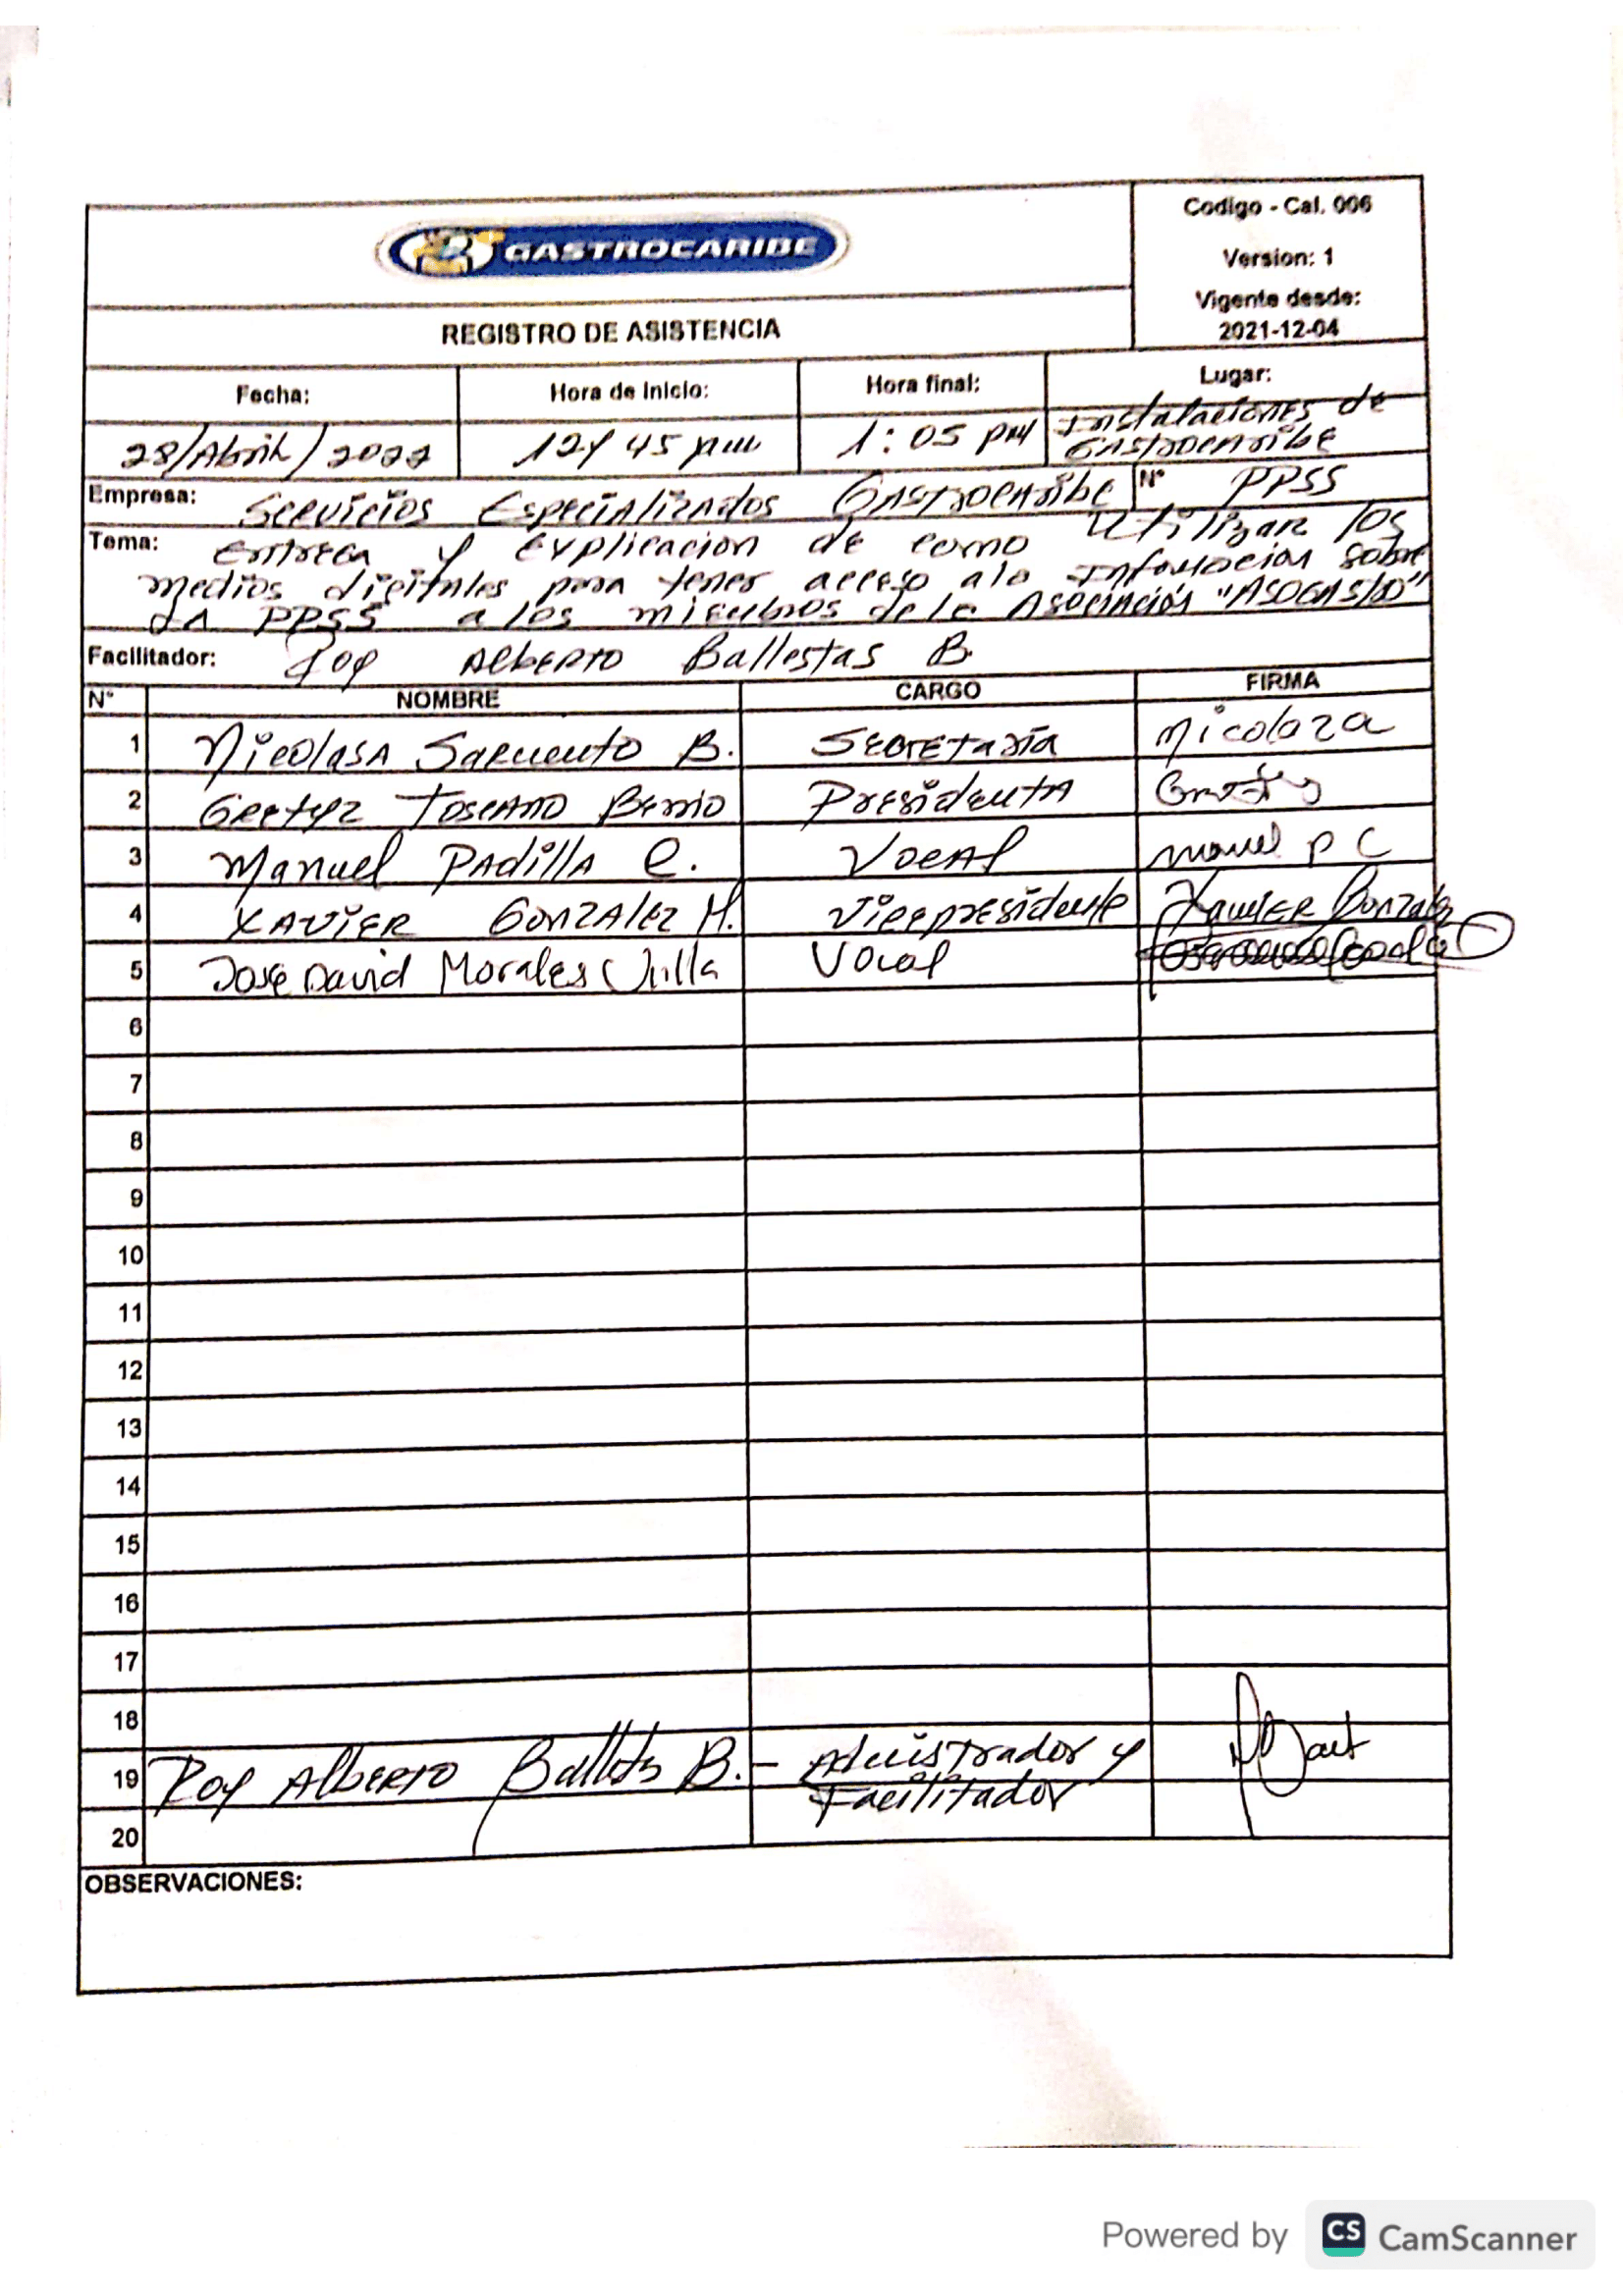 GASTROCARIBE
Codigo - Cal. 006
Version: 1
Vigente desde:
2021-12-04
REGISTRO DE ASISTENCIA
Fecha: Hora de Inicio: Hora final: Lugar:
28/Abril/2022 12y 45 pm 1:05 pm Instalaciones de
GASTROCARIBE
Empresa: Servicios Especializados GASTROCARIBE N° PPSS
Tema: Entrega y Explicacion de como Utilizar los
medios digitales para tener acceso a la Informacion sobre
LA PPSS a los miembros de la Asociación "ASOGASTRO"
Facilitador: Roy Alberto Ballestas B.
N° NOMBRE CARGO FIRMA
1 Nicolasa Sarmiento B. Secretaría Nicolaza
2 Toscano Berrio Presidenta
3 Manuel Padilla C. Vocal manuel P C
4 XAVIER GONZALEZ M. Vicepresidente Xavier Gonzalez
5 Jose David Morales Villa Vocal
6
7
8
9
10
11
12
13
14
15
16
17
18
19 Roy Alberto Ballestas B. - Administrador y
Facilitador
20
OBSERVACIONES:
Powered by CS CamScanner